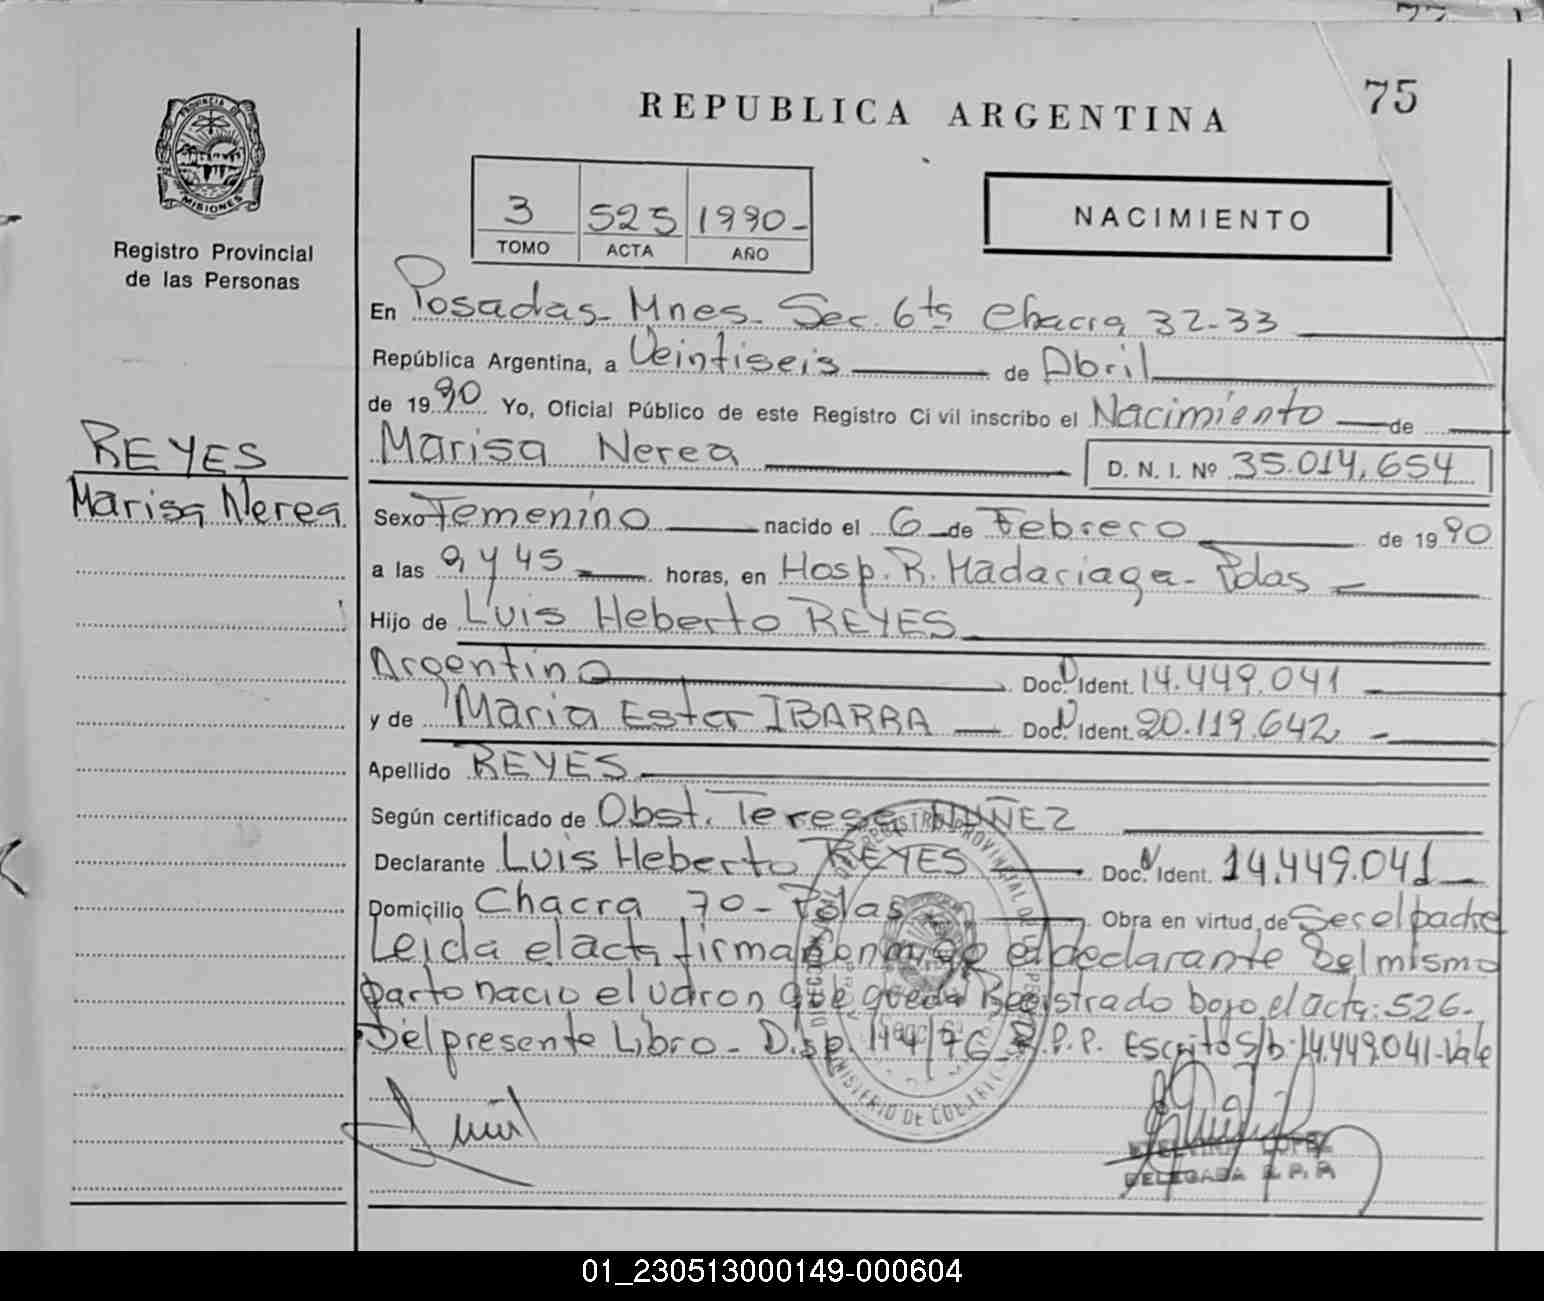 75
REPUBLICA ARGENTINA
PROVINCIA DE MISIONES
Registro Provincial
de las Personas
3 525 1990-
TOMO ACTA AÑO
NACIMIENTO
En Posadas- Mnes- Sec. 6ta Chacra 32-33
República Argentina, a Veintiseis de Abril
de 1990 Yo, Oficial Público de este Registro Civil inscribo el Nacimiento de
Marisa Nerea D. N. I. Nº 35.014.654
REYES
Marisa Nerea
Sexo Femenino nacido el 6 de Febrero de 1990
a las 9 y 45 horas, en Hosp. R. Madariaga- Pdas
Hijo de Luis Heberto REYES
Argentino Doc. Ident. 14.449.041
y de Maria Ester IBARRA Doc. Ident. 20.119.642
Apellido REYES
Según certificado de Obst. Teresa NUÑEZ
Declarante Luis Heberto REYES Doc. Ident. 14.449.041
Domicilio Chacra 70- Pdas Obra en virtud de Ser el padre
Leida el acta firma conmigo el declarante Del mismo
parto nacio el varon que queda Registrado bajo el acta: 526-
Del presente Libro- Disp. 144/76 R.P.P. Escrito S/b: 14.449.041-Vale
LOPEZ
DELEGADA R.P.P.
01_230513000149-000604